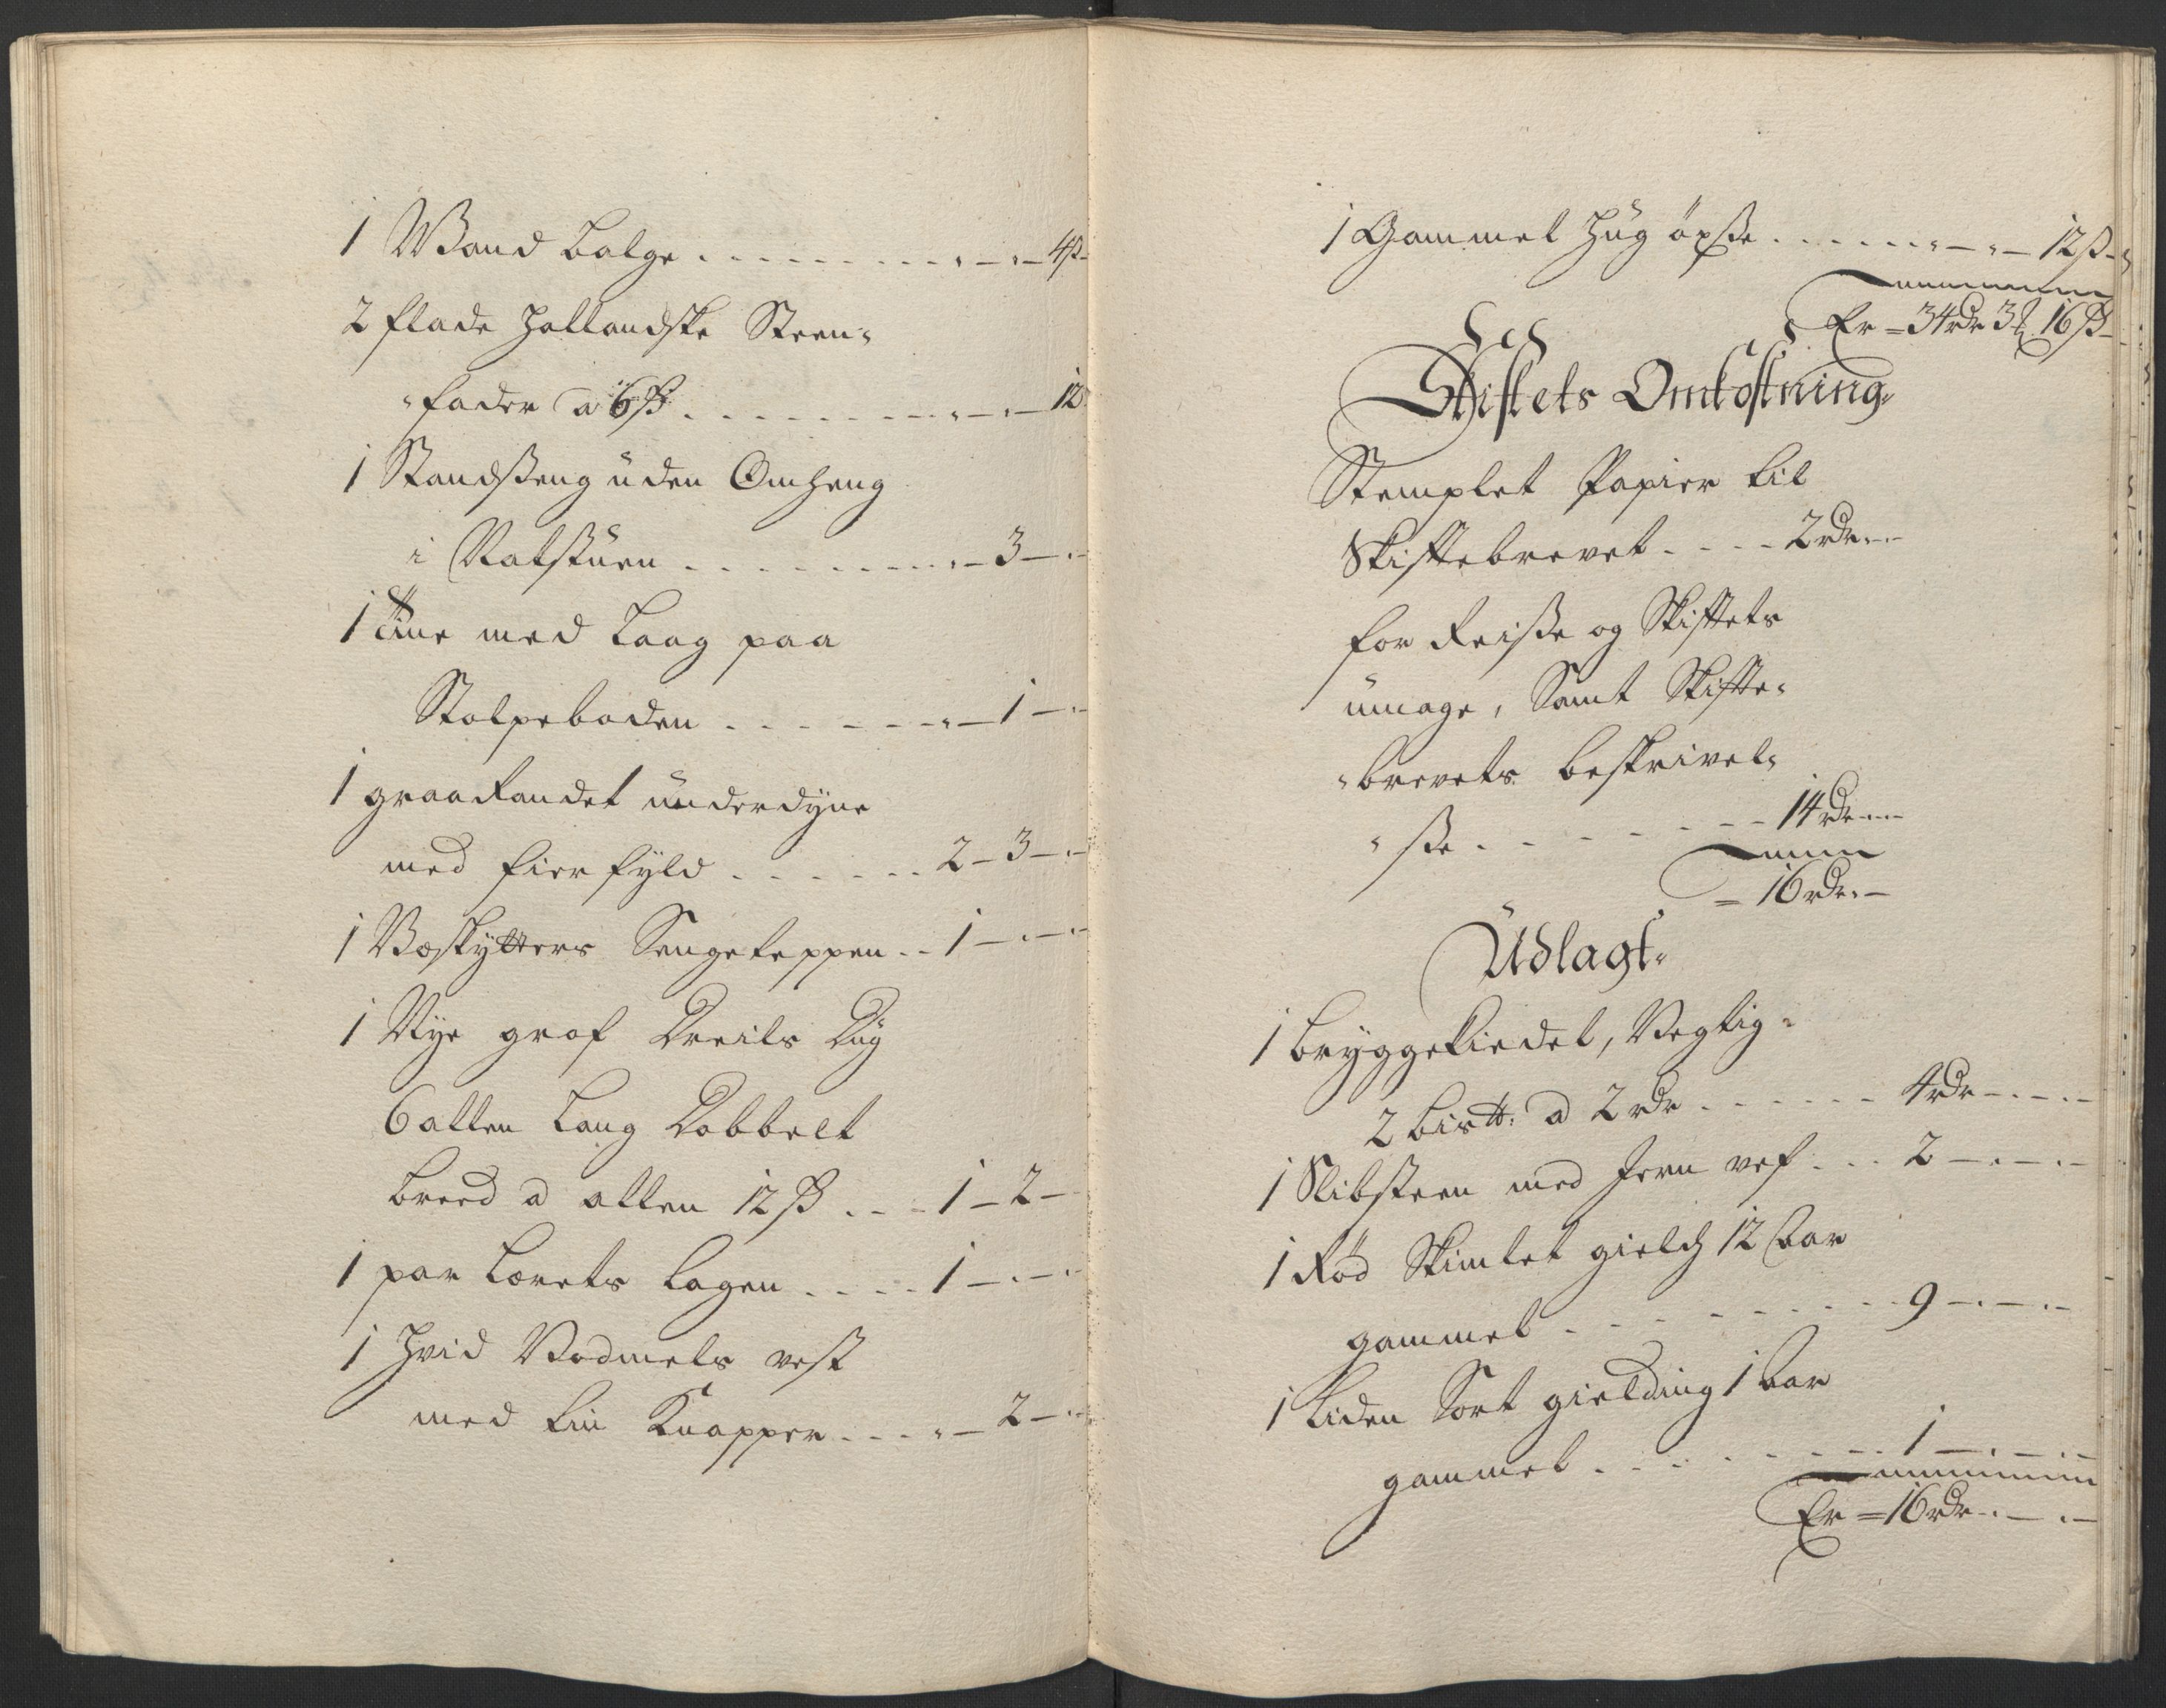 1 Wand balge . . . . . . . . . „ – „ – 4ß –
2 flade Hollandske Steen„
„fader a 6 ß . . . . . . . . . „ – „ – 12
1 Standseng uden Omheng
i Natstuen . . . . . . . . . „ – 3 – „
1 Tine med Laag paa
Stolpeboden . . . . . . „ – 1 – „
1 graaRandet underdyne
med fierfyld . . . . . . 2 – 3 – „
1 Væskytters Sengeteppen . . 1 – „ – „
1 Nye grof Dreils Dug
6 allen Lang Dobbelt
breed a allen 12 ß . . . 1 – 2 –
1 par Lærets Lagen . . . . 1 – „ – „
1 Hvid Vadmels vest
med tin Knapper . . . „ – 2 – „
1 Gammel Hug øxse . . . . . . „ – „ – 12 ß –
Er = 34 rdr 3 16 ß
Skiftets Omkostning„
Stemplet Papier til
Skiftebrevet . . . . 2 rdr „ –
for Reise og Skiftets
umage, Samt Skifte„
„brevets beskrivel„
„se . . . . . . . 14 rdr „ –
= 16 rdr „ –
Udlagt„
1 bryggekiedel, Vegtig„
2 bis℔: a 2 rdr . . . . . . 4 rdr – „ – „ –
1 Slibsteen med Jern vef . . . 2 – „ – „ –
1 Rød Skimlet gielch 12 aar
gammel . . . . . . . . 9 – „ – „ –
1 Liden Sort gielding 1 aar
gammel . . . . . . . . 1 – „ – „ –
Er = 16 rdr „ – „ –